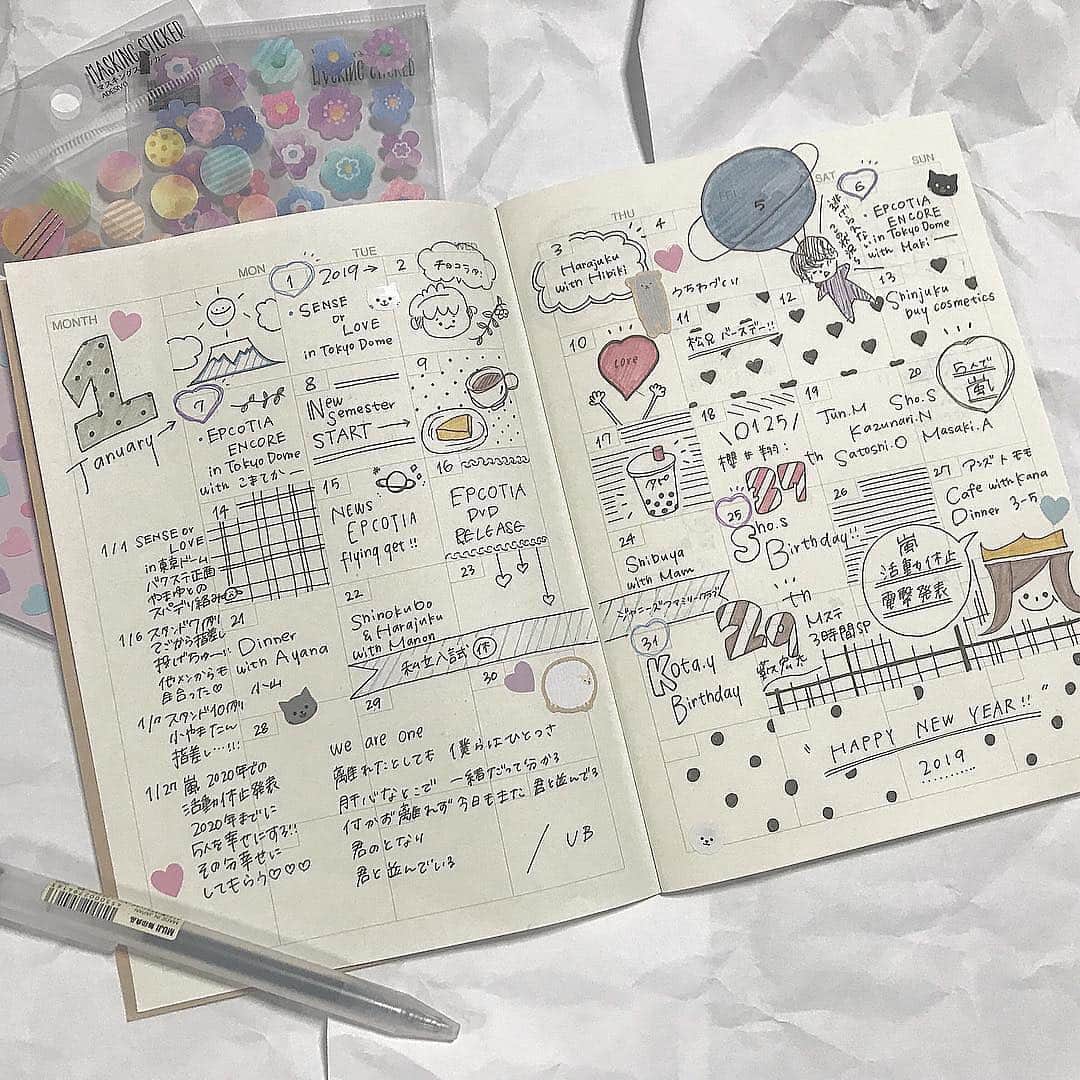 MASKING STICKER
マスキングステッカー
MASKING STICKER
MONTH
MON
TUE
WED
1
January
1
2019→
・SENSE
or
LOVE
in Tokyo Dome
2
チョコラタ!
7
・EPCOTIA
ENCORE
in Tokyo Dome
8
New
Semester
START
9
14
15
NEWS
EPCOTIA
flying get!!
16
EPCOTIA
DVD
RELEASE
21
Dinner
with Ayana
22
Shinokubo
& Harajuku
with Manon
23
私立入試 休
28
29
30
1/1 SENSE or
LOVE
in 東京ドーム
バクステ企画
1/6 スタンド
指差し
投げちゅー
1/7 スタンド10列
小やまたん
指差し…!!!
1/27 嵐 2020年での
活動休止発表
2020年までに
5人を幸せにする!!
その分幸せに
してもらう♡♡♡
we are one
離れたとしても 僕らはひとつさ
肝心なとこで 一緒だって分かる
付かず離れず今日もまた 君と並んでる
君のとなり
君と並んでいる
/ UB
THU
SAT
SUN
3
Harajuku
with Hibiki
4
うちわづくり
5
6
・EPCOTIA
ENCORE
in Tokyo Dome
with Maki
10
Love
11
バースデー!!
12
13
Shinjuku
buy cosmetics
17
タピ
18
\0125/
櫻井翔:
19
Jun.M Sho.S
Kazunari.N
Satoshi.O Masaki.A
20
5人で
嵐
24
Shibuya
with Mam
ジャニーズファミリークラブ
25
37th
Sho.S
Birthday!!
26
27 アンズトモモ
Cafe with Kana
Dinner 3-5
嵐
活動休止
電撃発表
31
Kota.y
Birthday
29th
Mステ
3時間SP
" HAPPY NEW YEAR!! "
2019
MUJI 無印良品
MADE IN JAPAN